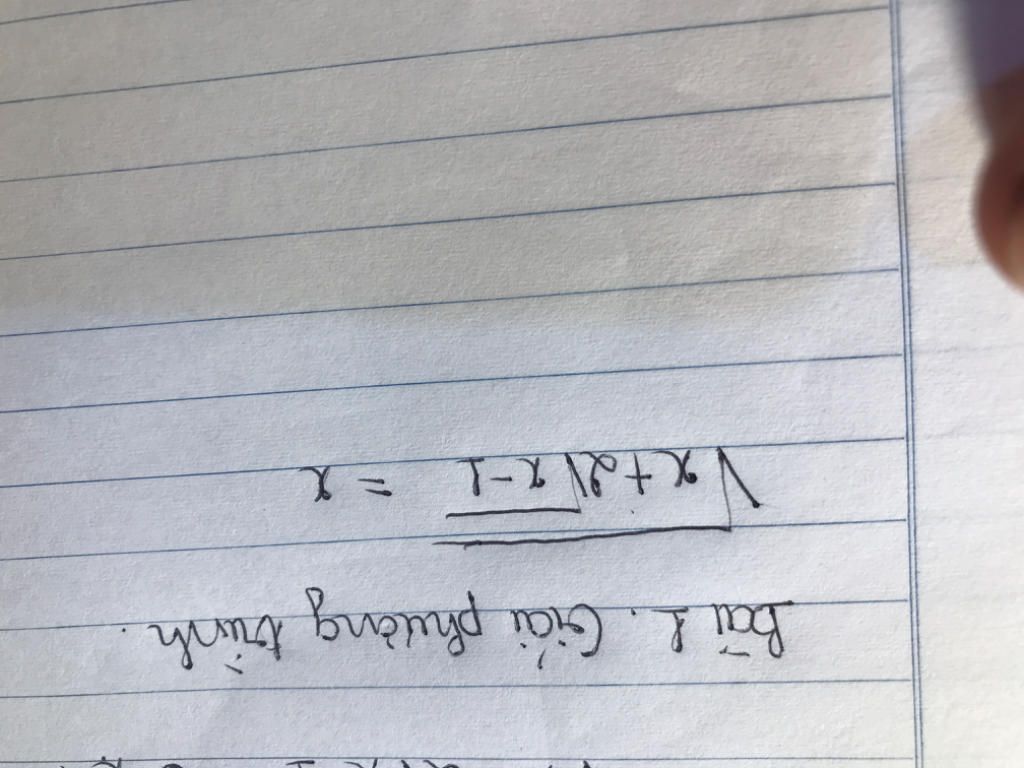 Bài 1. Giải phương trình.
√(x+2√(x-1)) = x